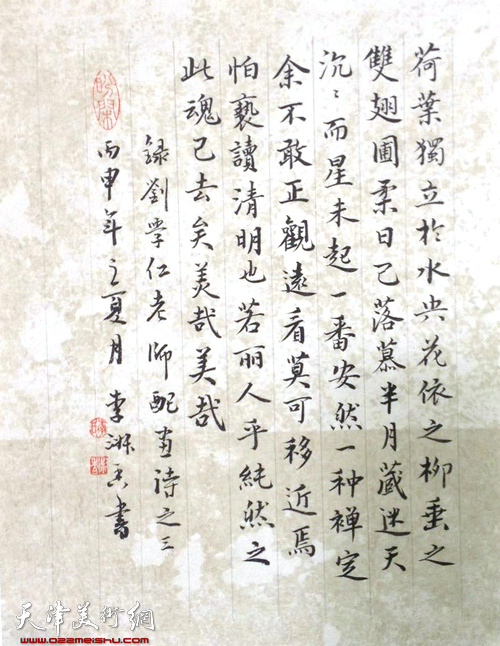 荷葉獨立於水央花依之柳垂之
雙翅圃柔日已落慕半月藏迷天
沉〻而星未起一番安然一种禅定
余不敢正觀遠看莫可移近焉
怕褻讀清明也若丽人乎純然之
此魂已去矣美哉美哉
錄劉学仁老师配画诗之三
丙申年之夏月 李淑香書
天津美術網
www.022meishu.com